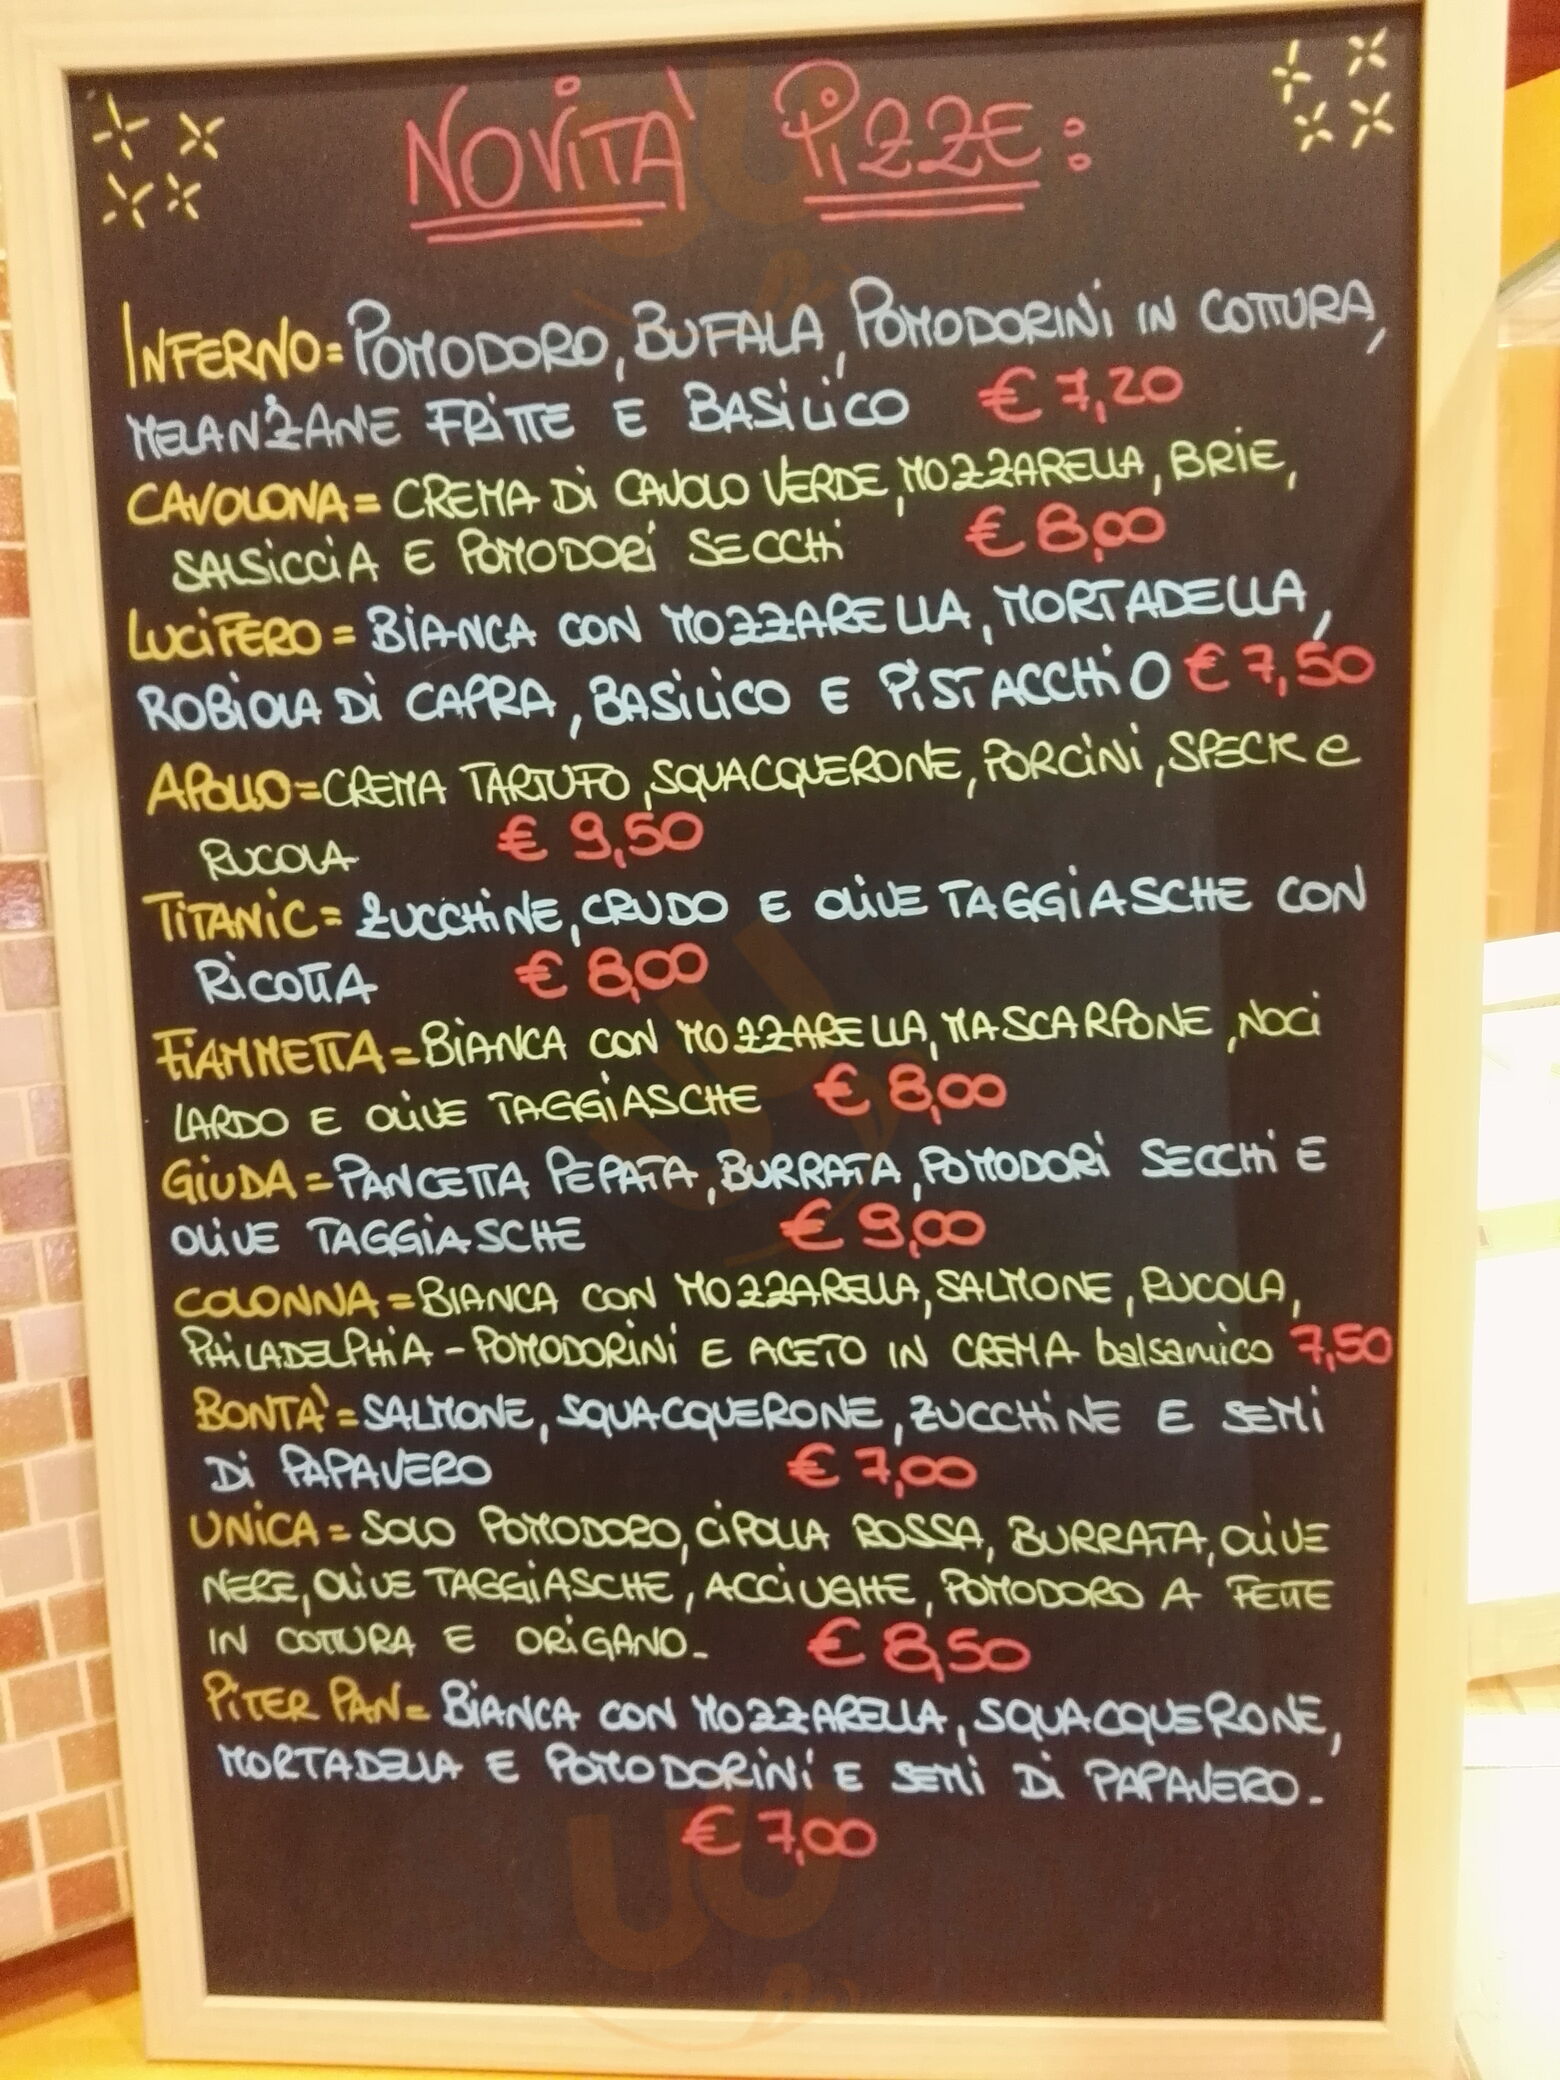 NOVITÀ PIZZE:
INFERNO = POMODORO, BUFALA, POMODORINI IN COTTURA,
MELANZANE FRITTE E BASILICO € 7,20
CAVOLONA = CREMA DI CAVOLO VERDE, MOZZARELLA, BRIE,
SALSICCIA E POMODORI SECCHI € 8,00
LUCIFERO = BIANCA CON MOZZARELLA, MORTADELLA,
ROBIOLA DI CAPRA, BASILICO E PISTACCHIO € 7,50
APOLLO = CREMA TARTUFO, SQUACQUERONE, PORCINI, SPECK e
RUCOLA € 9,50
TITANIC = ZUCCHINE, CRUDO E OLIVE TAGGIASCHE CON
RICOTTA € 8,00
FIAMMETTA = BIANCA CON MOZZARELLA, MASCARPONE, NOCI
LARDO E OLIVE TAGGIASCHE € 8,00
GIUDA = PANCETTA PEPATA, BURRATA, POMODORI SECCHI E
OLIVE TAGGIASCHE € 9,00
COLONNA = BIANCA CON MOZZARELLA, SALMONE, RUCOLA,
PHILADELPHIA - POMODORINI E ACETO IN CREMA balsamico 7,50
BONTA' = SALMONE, SQUACQUERONE, ZUCCHINE E SEMI
DI PAPAVERO € 7,00
UNICA = SOLO POMODORO, CIPOLLA ROSSA, BURRATA, OLIVE
NERE, OLIVE TAGGIASCHE, ACCIUGHE, POMODORO A FETTE
IN COTTURA E ORIGANO - € 8,50
PITER PAN = BIANCA CON MOZZARELLA, SQUACQUERONE,
MORTADELLA E POMODORINI E SEMI DI PAPAVERO -
€ 7,00